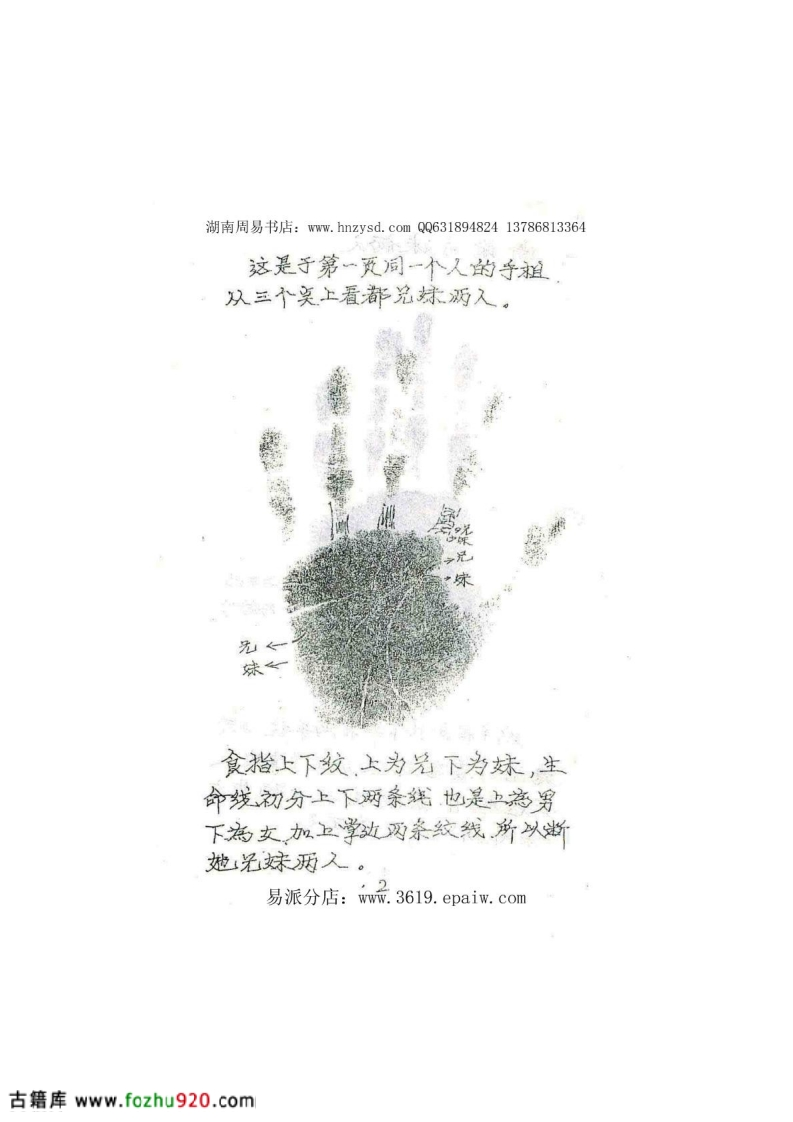 湖南周易书店：www.hnzysd.com QQ631894824 13786813364
这是于第一页同一个人的手祖
从三个突上看都兄妹两人。
兄
妹
兄
妹
兄
妹
食指上下纹、上为兄下为妹，生
命线初分上下两条线 也是上為男
下為女、加上掌边两条纹线、所以断
她兄妹两人。
2
易派分店：www.3619.epaiw.com
古籍库 www.fozhu920.com